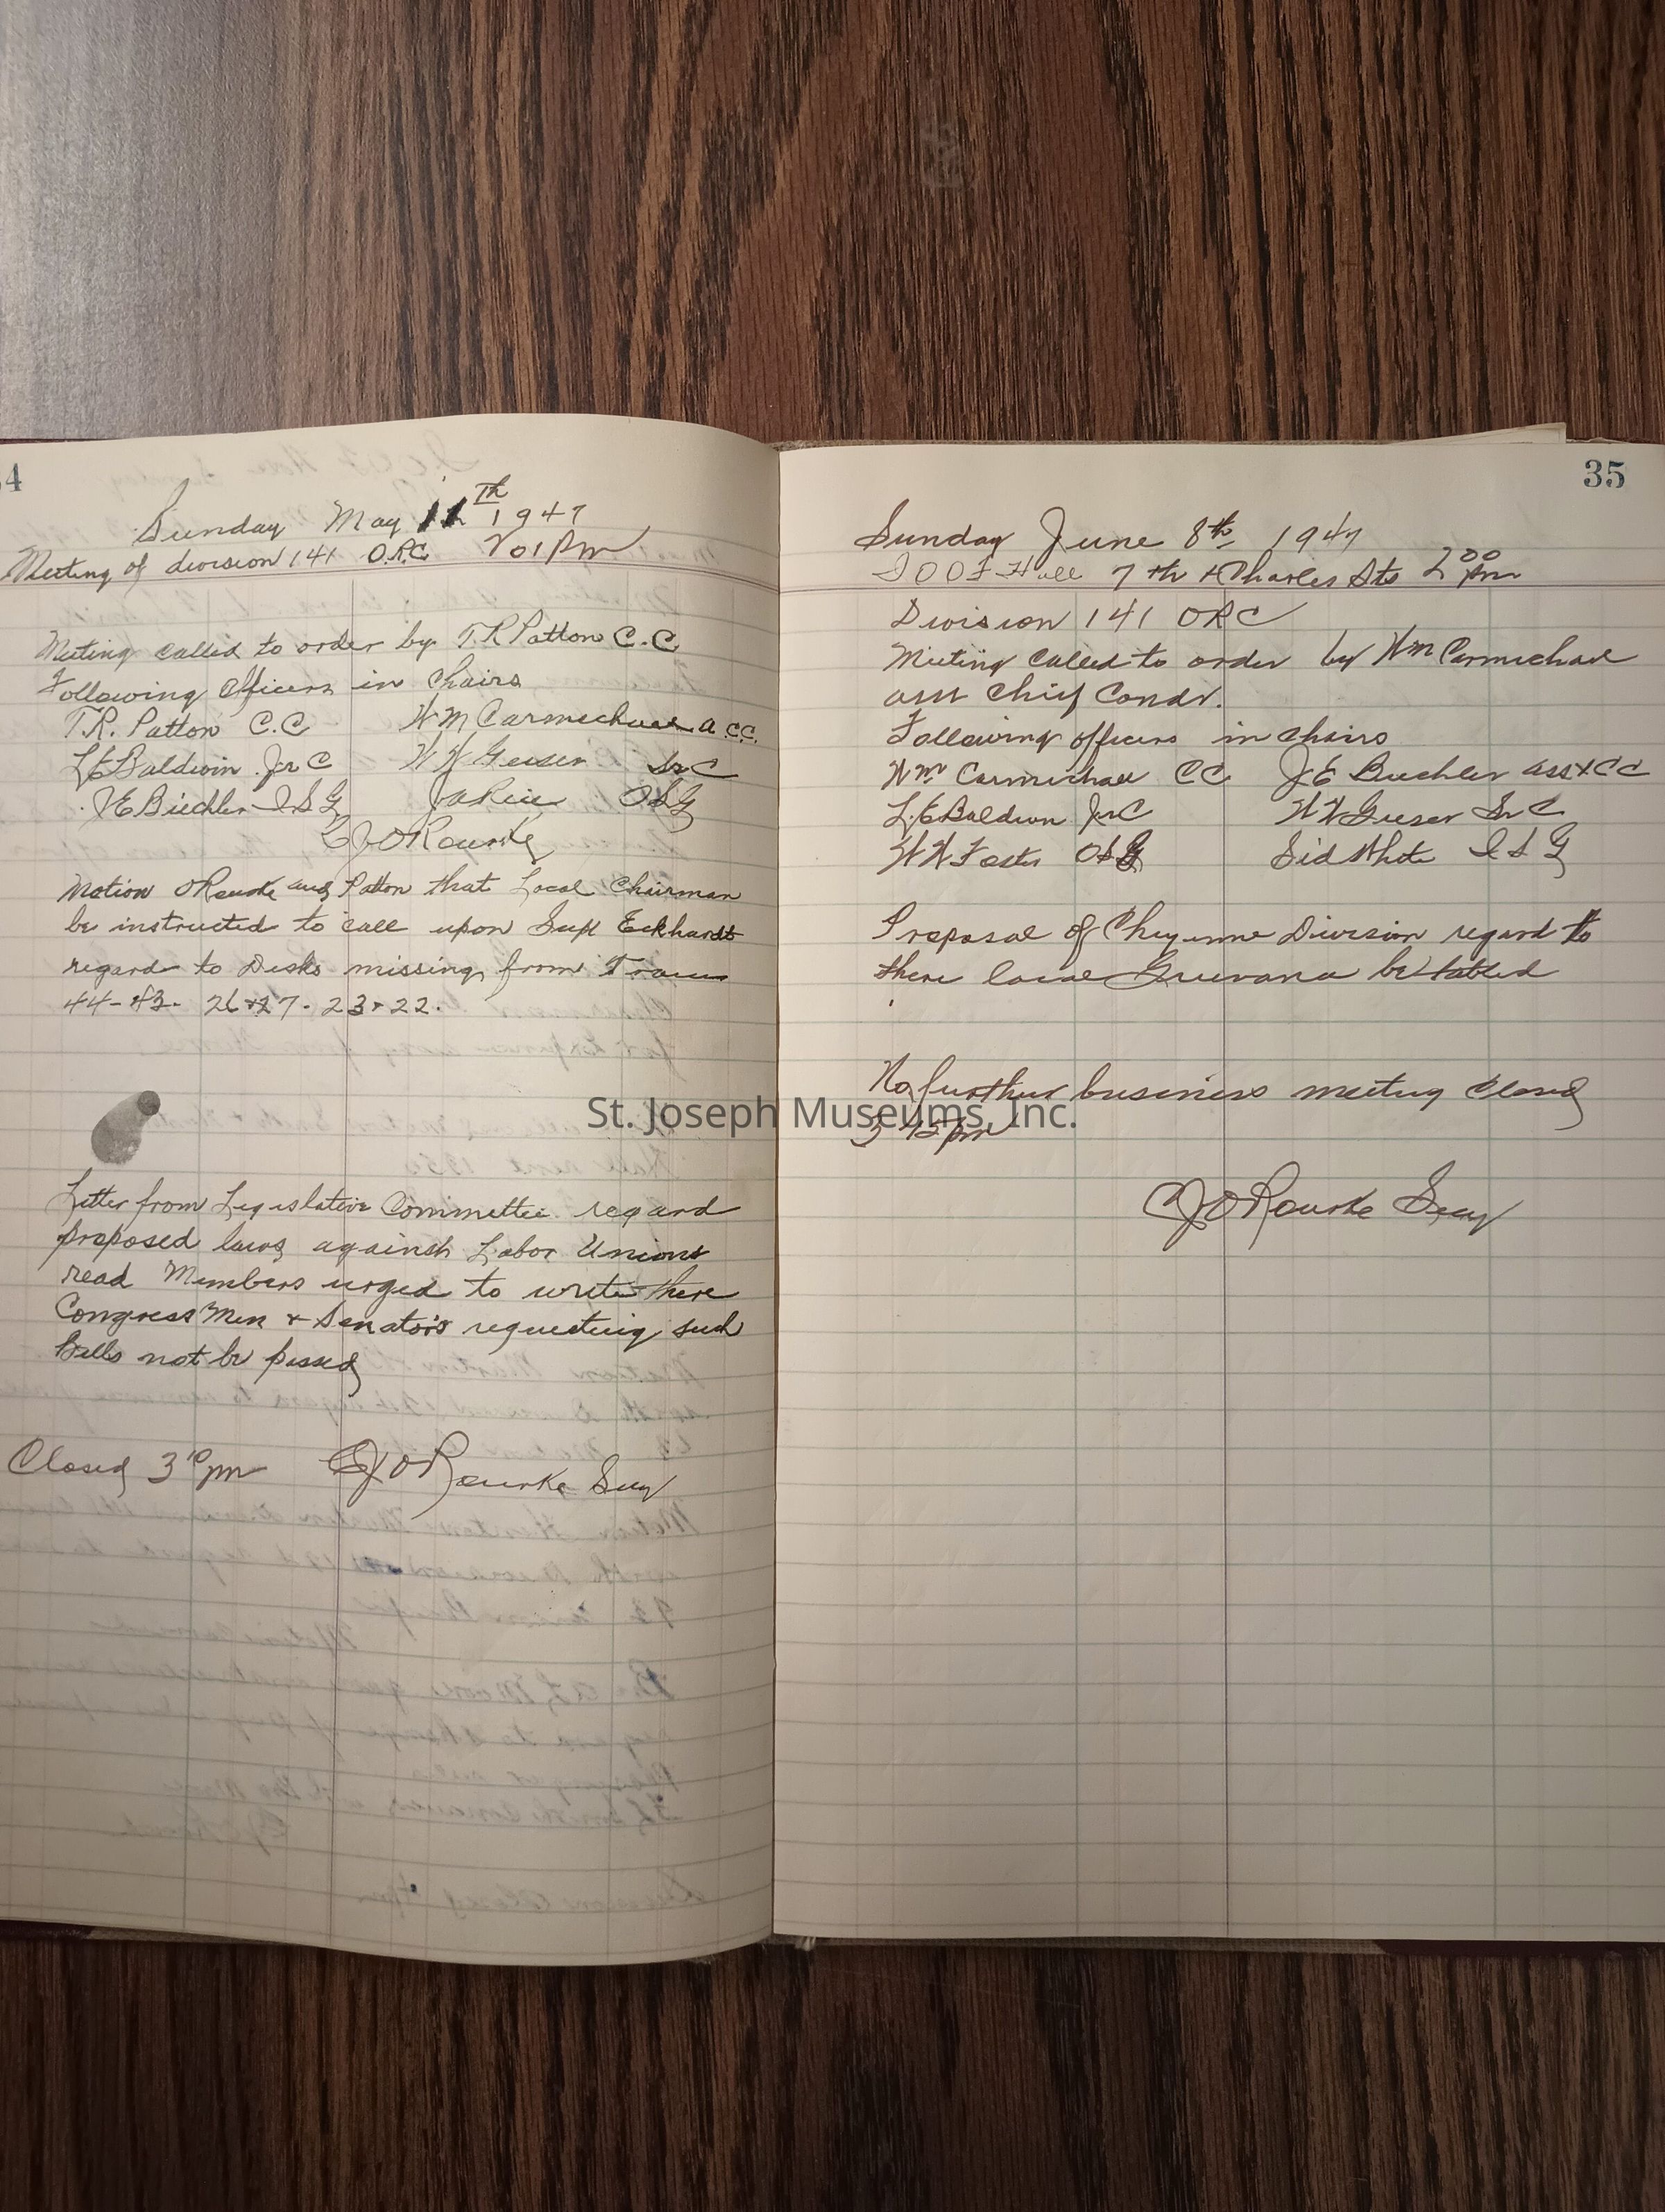 34
Sunday May 11th 1947
Meeting of division 141 O.R.C. 201 PM
Meeting called to order by T.R. Patton C.C.
Following Officers in Chairs
T.R. Patton C.C Wm Carmichael A.C.C.
L E Baldwin Jr C W W Geiser Sr C
J E Buehler I S G J A Rice O S G
E J O Rourke
Motion O Rourke and Patton that Local Chairman
be instructed to call upon Supt Eckhardt
regard to Desks missing from Trains
44-43. 26+27. 23+22.
Letter from Legislative Committee regard
proposed laws against Labor Unions
read Members urged to write there
Congress Men + Senators requesting such
bills not be passed
Closed 3 10 pm E J O Rourke Secy
35
Sunday June 8th 1947
I O O F Hall 7th + Charles Sts 2 00 pm
Division 141 ORC
Meeting called to order by Wm Carmichael
asst Chief Condr.
Following officers in chairs
Wm Carmichael CC J E Buehler asst CC
L. E Baldwin Jr C W W Geiser Sr C
W W Foster O S G Sid White I S G
Proposal of Cheyenne Division regard to
there local Grievance be tabled
No further business meeting closed
3 45 pm
E J O Rourke Secy
St. Joseph Museums, Inc.